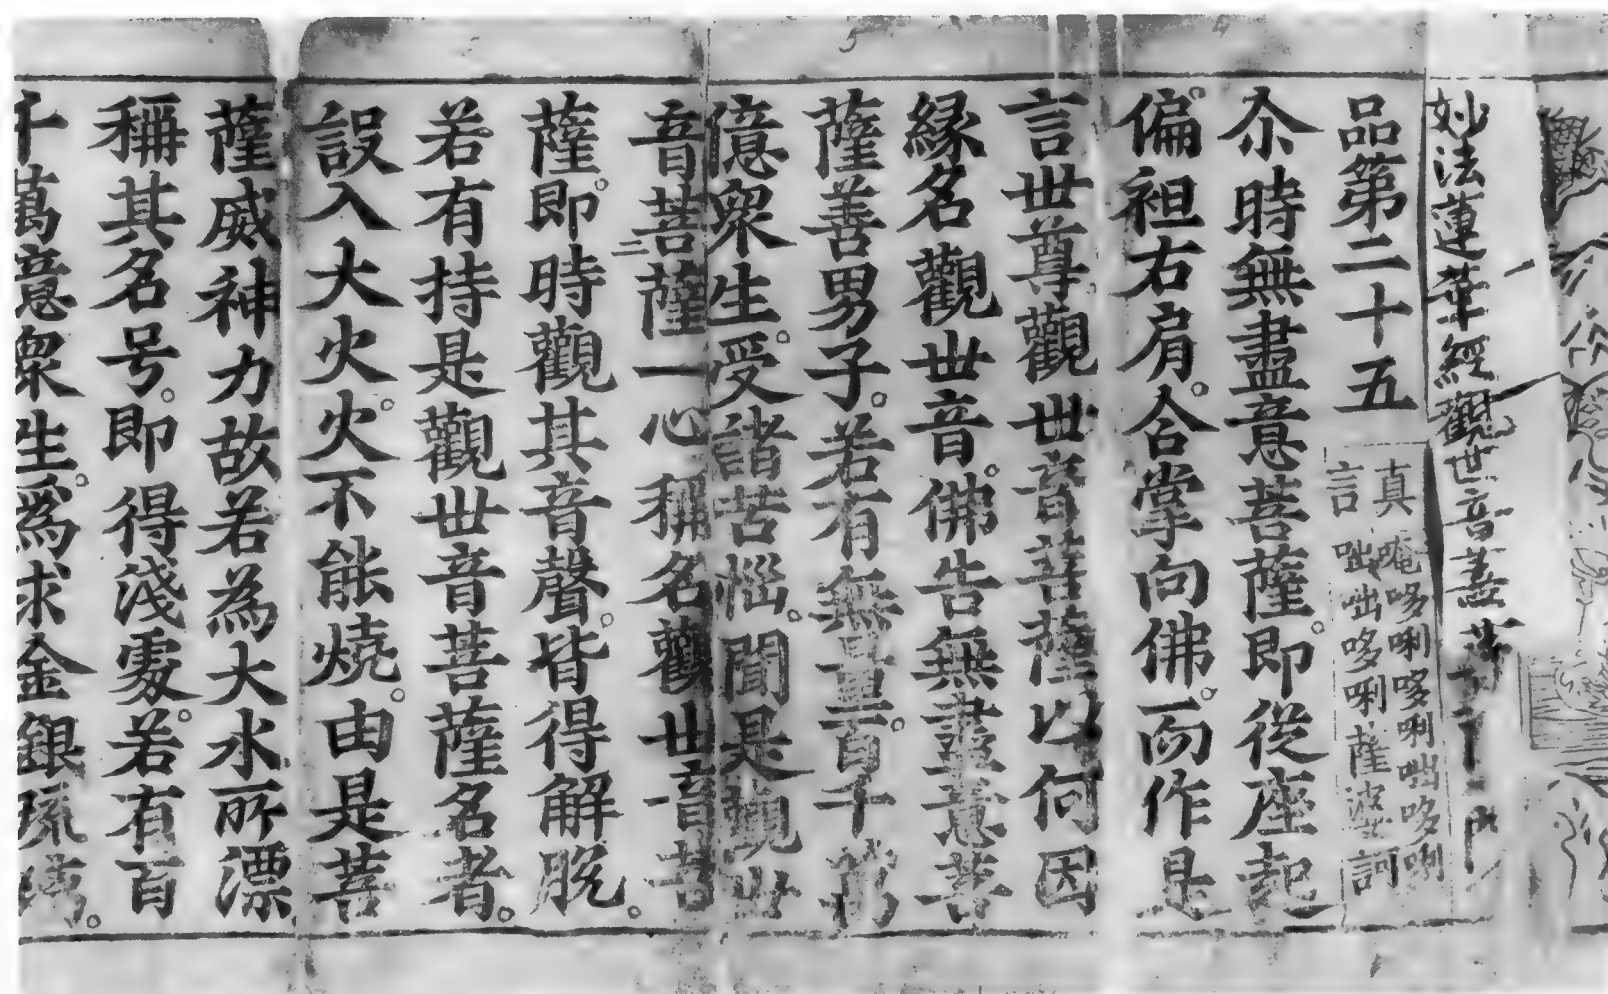 妙法蓮華經觀世音菩薩普門
品第二十五
真言
唵哆唎哆唎咄哆唎
咄咄哆唎薩婆訶
尒時無盡意菩薩。即從座起
偏。袒右肩。合掌向佛。而作是
言世尊。觀世音菩薩以何因
緣名觀世音。佛告無盡意菩
薩善男子。若有無量百千萬
億衆生。受諸苦惱。聞是觀世
音菩薩一心稱名觀世音菩
二
薩。即時觀其音聲。皆得解脫。
若有持是觀世音菩薩名者。
設入大火。火不能燒。由是菩
薩威神力故若為大水所漂
稱其名号。即得淺處。若有百
千萬意衆生。為求金銀琉璃。
5